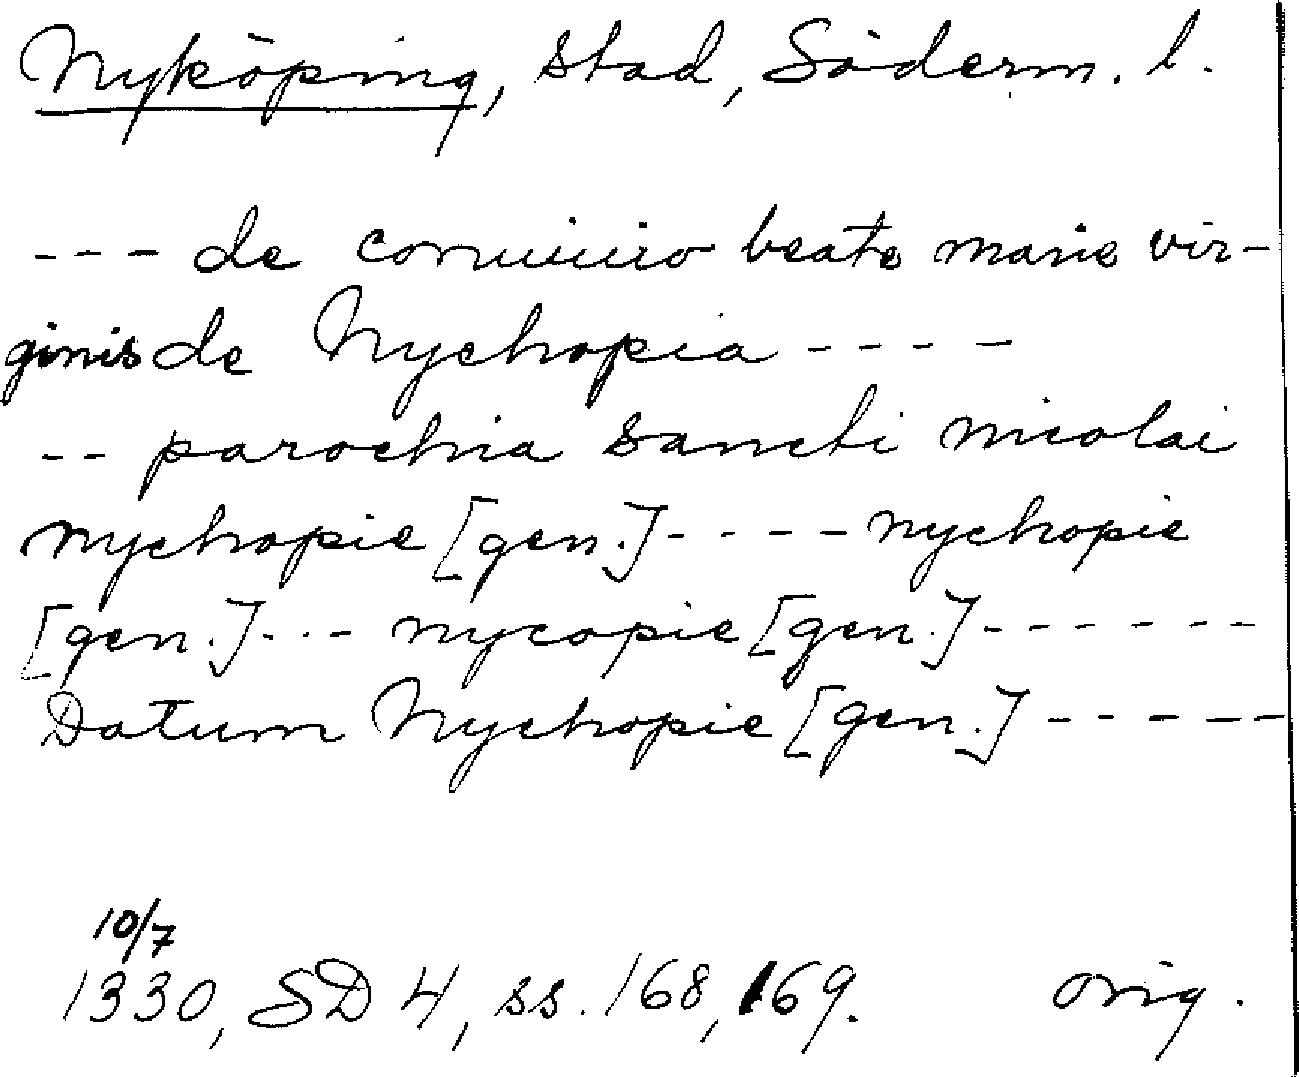 Nyköping, stad, Söderm. l.
--- de conuiuio beate marie vir-
ginis de Nychopia ----
-- parochia sancti nicolai
nychopie [gen.] ---- nychopie
[gen.] --- nycopie [gen.] ------
Datum Nychopie [gen.] -----
10/7
1330, SD 4, ss. 168, 169. orig.